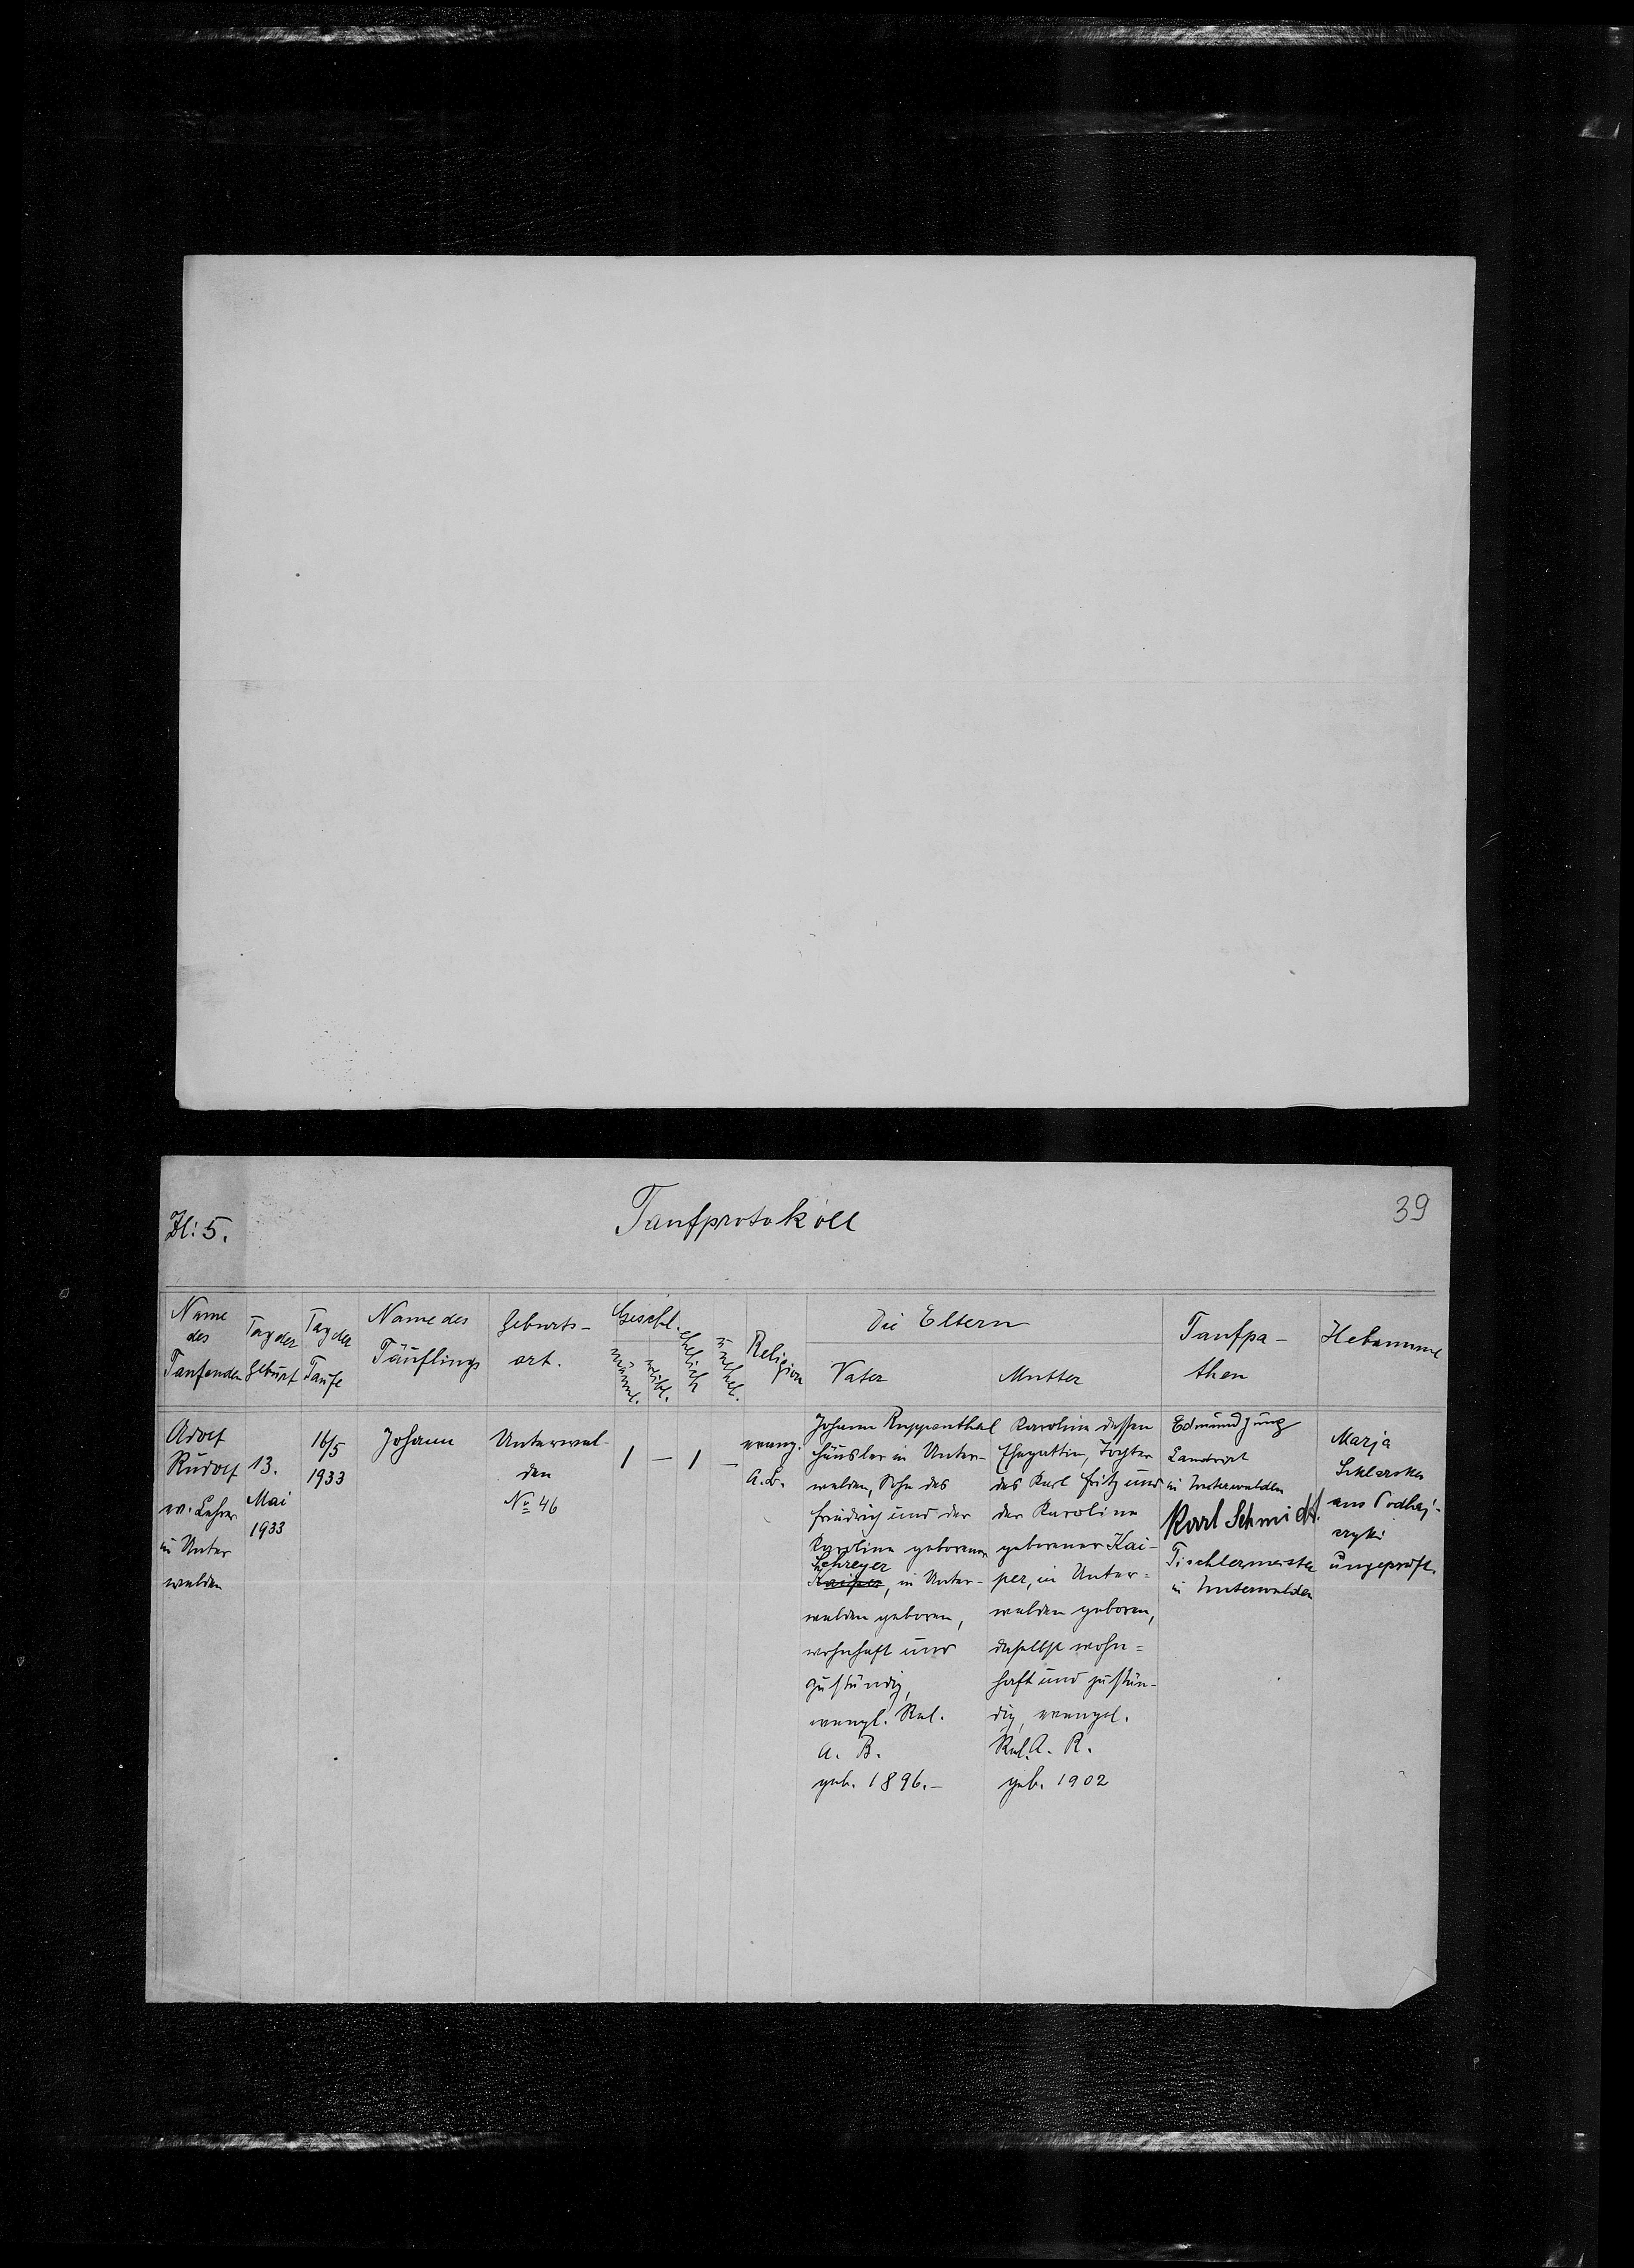 Zl: 5.
Taufprotokoll
39
Name
des
Taufenden
Tag der
Geburt
Tag der
Taufe
Name des
Täuflings
Geburts-
ort.
Geschl.
männl.
weibl.
ehelich
unehel.
Religion
Die Eltern
Vater
Mutter
Taufpa-
then
Hebamme
Adolf
Rudolf
ev. Lehrer
in Unter
walden
13.
Mai
1933
16/5
1933
Johann
Unterwal-
den
No 46
1
—
1
—
evang.
A. B.
Johann Ruppenthal
Häusler in Unter-
walden, Sohn des
Friedrich und der
Karolina geborener
Schreyer
Kaiper, in Unter-
walden geboren,
wohnhaft und
zuständig,
evangl. Rel.
A. B.
geb. 1896.—
Karolina dessen
Ehegattin, Tochter
des Karl Fritz und
der Karolina
geborener Kai-
per, in Unter=
walden geboren,
daselbst wohn=
haft und zustän-
dig, evangel.
Rel. A. B.
geb. 1902
Edmund Jung
Landwirt
in Unterwalden
Karl Schmidt.
Tischlermeister
in Unterwalden
Marja
aus Podhaj-
czyki
ungeprüft.